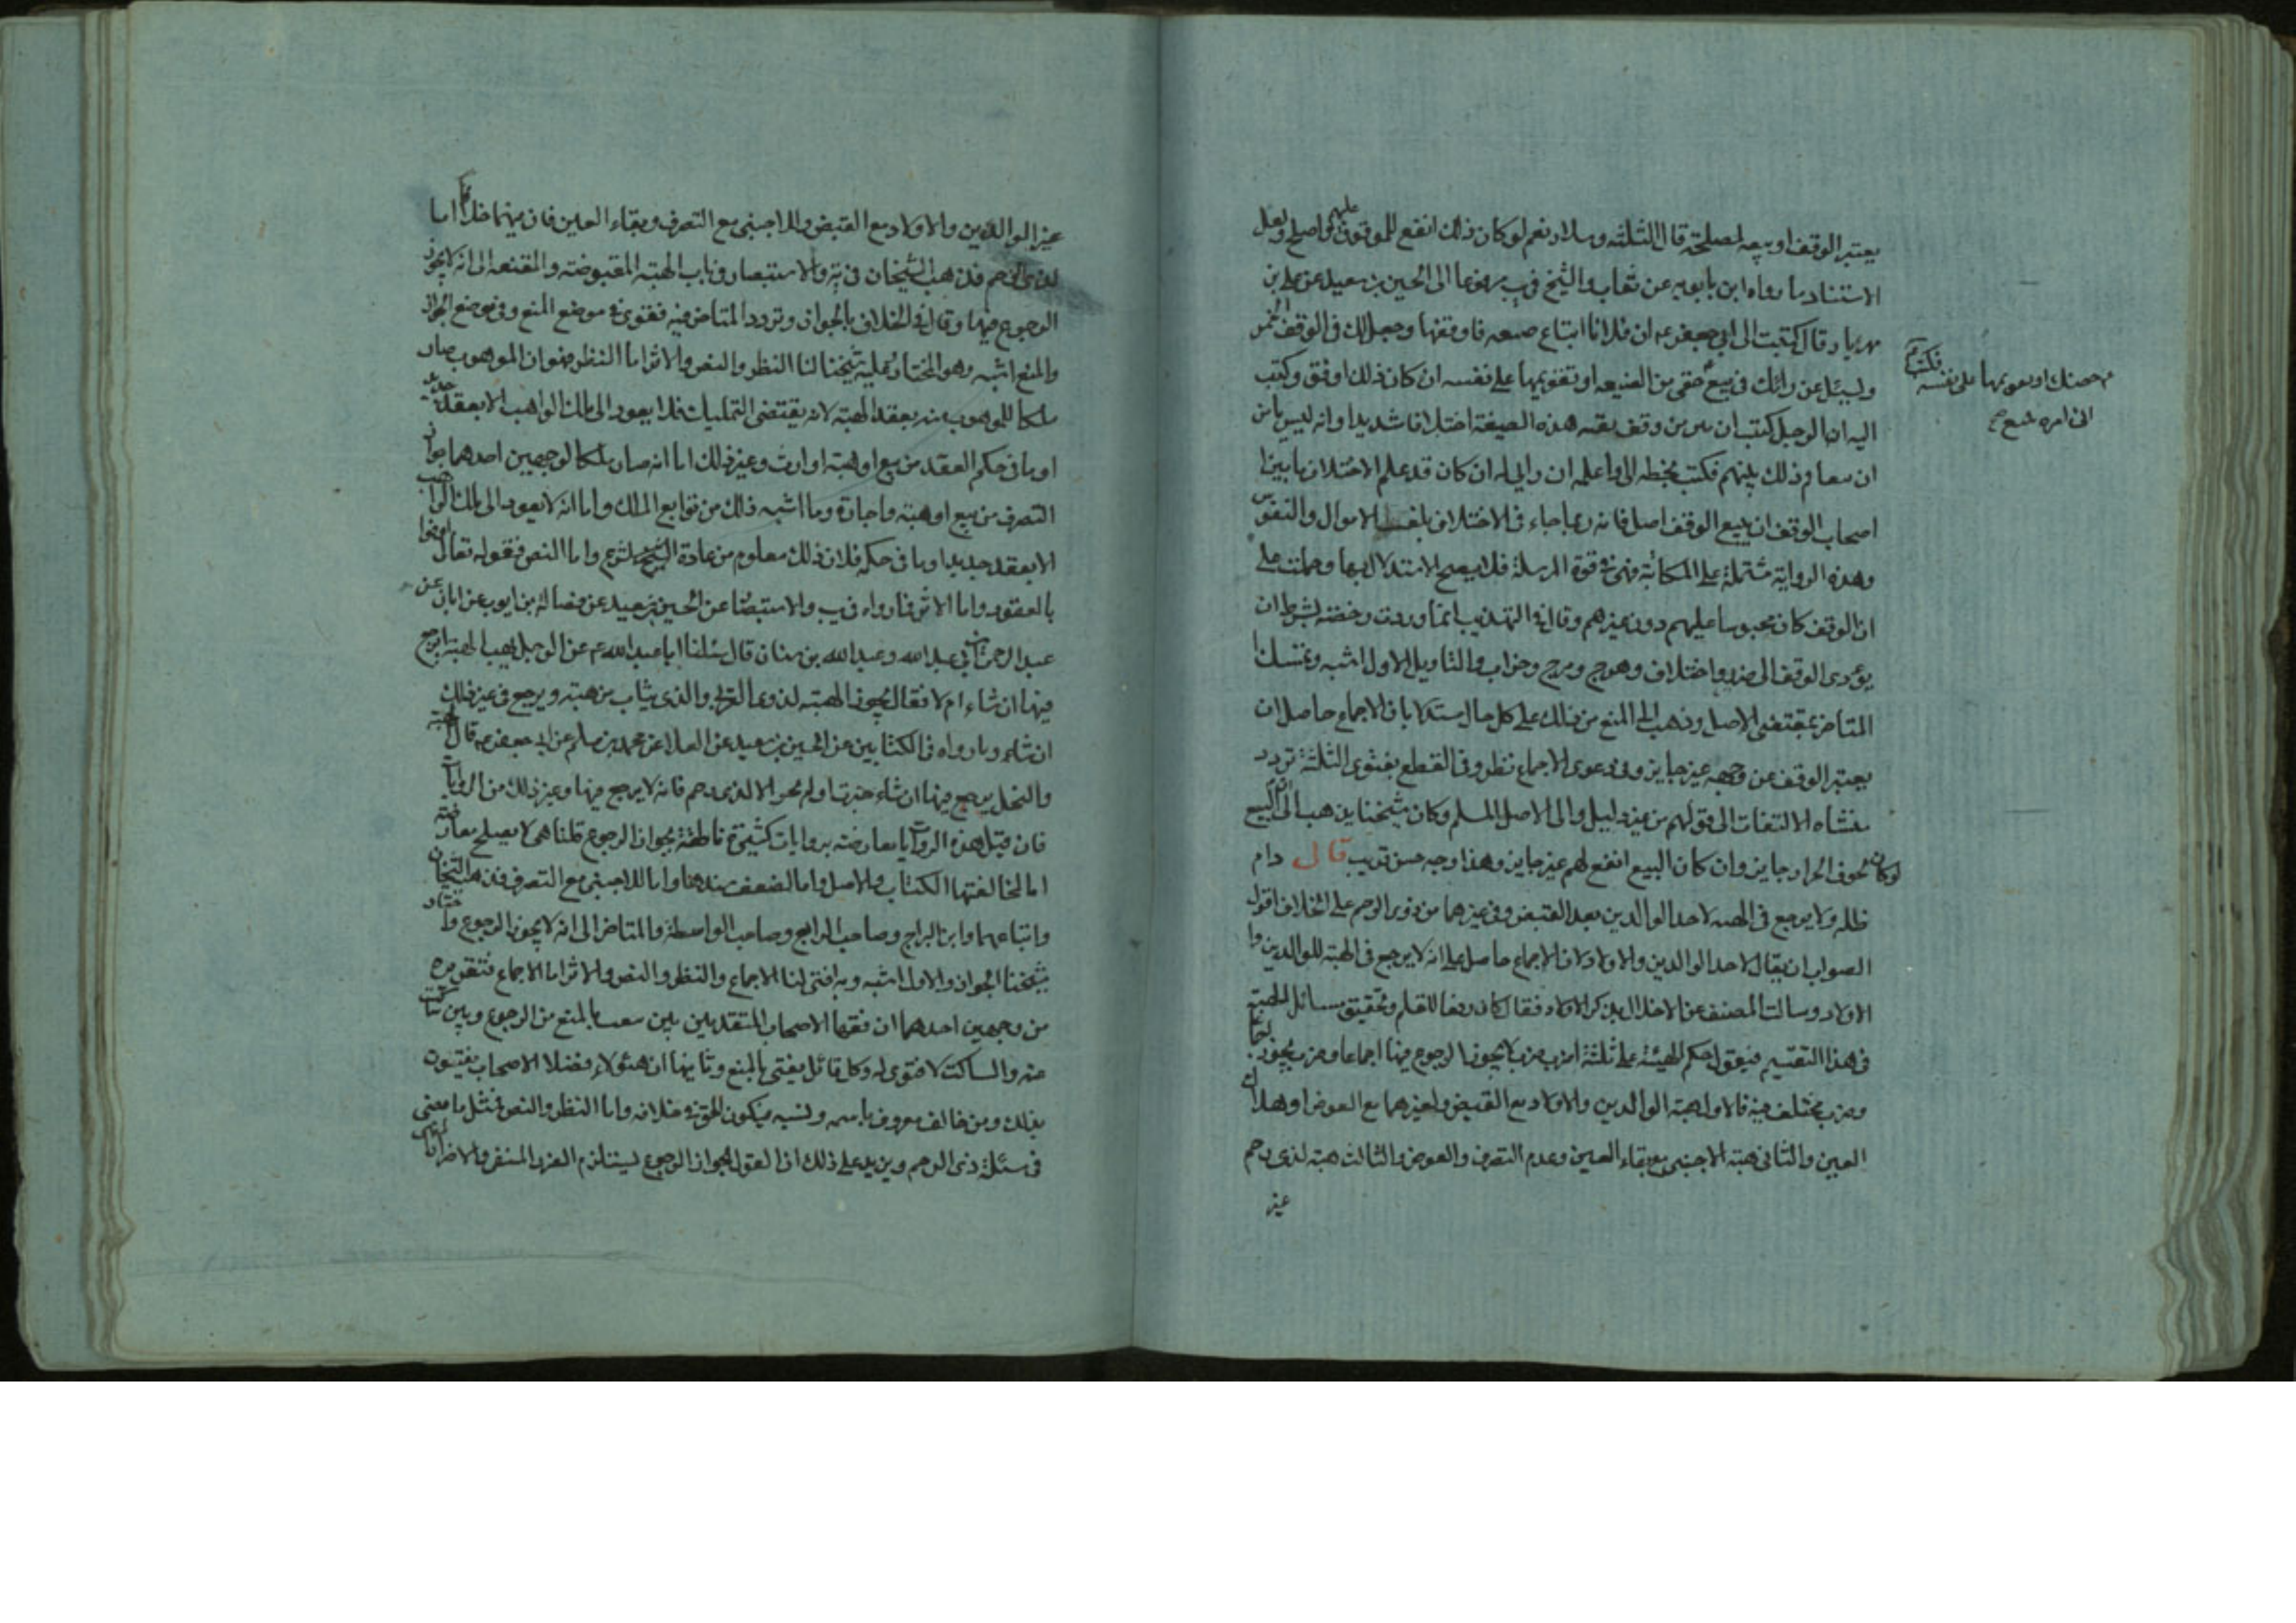 يعتبر الوقف او بيعه لمصلحة قال الثلثه وسلار نعم لو كان ذلك انفع للموقوف عليهم واصلح ولعل
الاستناد ما رواه ابن بابويه عن والشيخ في يب مرفوعا الى الحسين بن سعيد عن علي بن
مهزيار قال كتبت الى ابي جعفر عم ان فلانا ابتاع ضيعه فاوقفها وجعل لك في الوقف الخمس
ويسئل عن رائك في بيع حقى من الضيعه او تقويمها على نفسه ان كان ذلك اوفق وكتب
اليه ان الرجل كتب ان بين من وقف بقيه هذه الضيعة اختلافا شديدا وانه ليس يامن
ان يتفاقم ذلك بينهم فكتب بخطه الى واعلمه ان رايي له ان كان قد علم الاختلاف ما بين
اصحاب الوقف ان يبيع الوقف اصل فانه ربما جاء في الاختلاف تلف الاموال والنفوس
وهذه الرواية مشتملة على المكاتبة فهي في قوة المرسلة فلا يصح الاستدلال بها وحملت على
ان الوقف كان محبوسا عليهم دون غيرهم وقال في التهذيب انما وردت رخصة بشرط ان
يؤدى الوقف الى ضرر واختلاف وهرج ومرج وخراب والتاويل الاول اشبه وتمسك
المتاخر بمقتضى الاصل وذهب الى المنع من ذلك على كل حال مستدلا بان الاجماع حاصل ان
يعتبر الوقف عن وجهه غير جايز وفي دعوى الاجماع نظر وفي القطع بفتوى الثلثة تردد
منشاه الالتفات الى قولهم من غير دليل والى الاصل المسلم وكان شيخنا يذهب الى ان البيع
لو كان لخوف الخراب جايز وان كان البيع انفع لهم غير جايز وهذا وجه حسن قريب قال دام
ظله ولا يرجع في الهبه لاحد الوالدين بعد القبض وفي غيرهما من ذوى الرحم على الخلاف اقول
الصواب ان يقال لاحد الوالدين والاولاد لان الاجماع حاصل على انه لا يرجع في الهبة للوالدين وا
الاولاد وسالت المصنف عن الاخلال بذكر الاولاد فقال كان للقلم وتحقيق مسائل الهبة
في هذا التقسيم فيقول حكم الهبة على ثلثة اضرب ضرب لا يجوز الرجوع فيها اجماعا وضرب يجوز
وضرب مختلف فيه فالاول هبة الوالدين والاولاد مع القبض ولغيرهما مع العوض او هلاك
العين والثاني هبة الاجنبي مع بقاء العين وعدم التصرف والعوض والثالث هبة لذي رحم
غير
حصتك او تقويمها على نفسه
فكتب
الى امره
غير الوالدين والاولاد مع القبض وللاجنبي مع التصرف وبقاء العين فان فيهما خلافا اما
لذي الرحم فذهب الشيخان في يه والاستبصار في باب الهبة المقبوضة والمقنعه الى انه لا يجوز
الرجوع فيها وقال في الخلاف بالجواز وتردد المتاخر فيه فقوى في موضع المنع وفي موضع الجواز
والمنع اشبه وهو المختار وعليه شيخنا لنا النظر والنص والاثر اما النظر فهو ان الموهوب صار
ملكا للموهوب منه بعقد الهبة لانه يقتضى التمليك فلا يعود الى ملك الواهب الا بعقد جديد
او ما في حكم العقد من بيع او هبة او ارث وغير ذلك اما انه صار ملكا لوجهين احدهما جواز
التصرف من بيع او هبة واجارة وما اشبه ذلك من توابع الملك واما انه لا يعود الى ملك الواهب
الا بعقد جديد او ما في حكمه فلان ذلك معلوم من عادة الشرع واما النص فقوله تعالى اوفوا
بالعقود واما الاثر فما رواه في يب والاستبصار عن الحسين بن سعيد عن فضالة بن ايوب عن ابان عن
عبد الرحمن بن ابي عبد الله وعبد الله بن سنان قال سئلنا ابا عبد الله عم عن الرجل يهب الهبة ايرجع
فيها ان شاء ام لا فقال يجوز الهبة لذوى القرابة والذي يثاب من هبته ويرجع في غير ذلك
ان شاء وما رواه في الكتابين عن الحسين بن سعيد عن العلا عن محمد بن مسلم عن ابي جعفر عم قال الهبة
والنحل يرجع فيها ان شاء حيزت او لم تحز الا لذي رحم فانه لا يرجع فيها وغير ذلك من الروايات
فان قيل هذه الروايات معارضة بروايات كثيرة ناطقة بجواز الرجوع قلنا هي لا يصلح معارضة
اما لمخالفتها الكتاب والاصل واما لضعف سندها واما للاجنبي مع التصرف فذهب الشيخان
واتباعهما وابن البراج وصاحب الرايع وصاحب الواسطة والمتاخر الى انه لا يجوز الرجوع واختار
شيخنا الجواز والاول اشبه وبه افتى لنا الاجماع والنظر والنص والاثر اما الاجماع فتقريره
من وجهين احدهما ان فقها الاصحاب المتقدمين بين بالمنع من الرجوع وبين ساكت
عنه والساكت لا فتوى له وكل قائل يفتى بالمنع وثانيها ان هؤلاء فضلا الاصحاب يفتون
بذلك ومن خالف معروف باسمه ونسبه فيكون الحق في خلافه واما النظر والنص فمثل ما مضى
في مسئلة ذي الرحم ويزيد على ذلك ان القول بجواز الرجوع يستلزم الضرر المنفي والاضرار